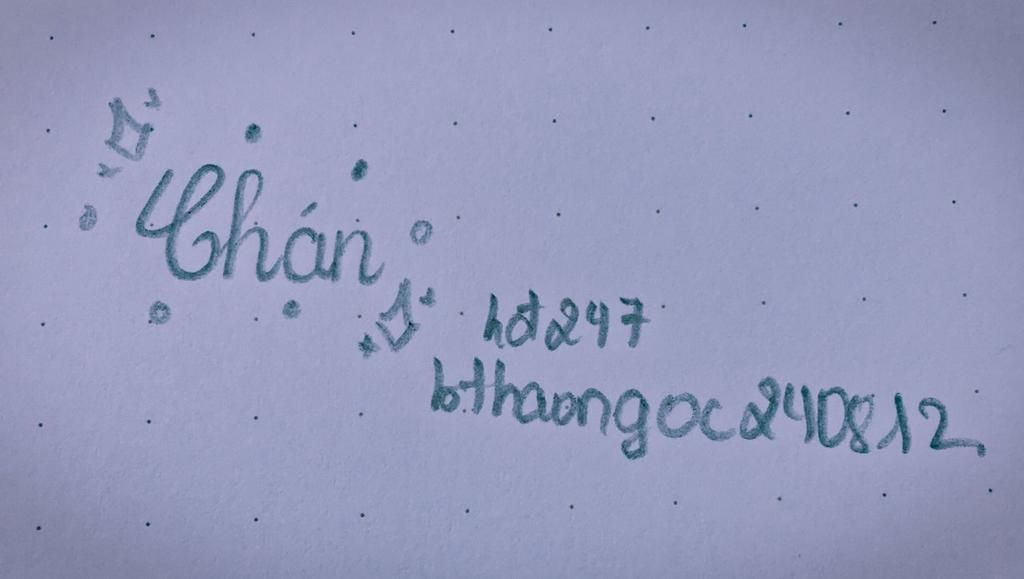 Chán
hđ247
bthaongoc240812